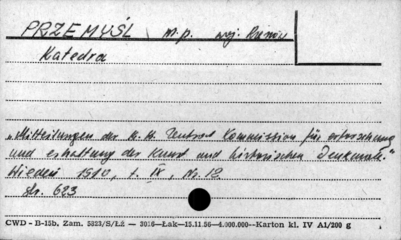 PRZEMYŚL m.p. woj. Rzeszów
Katedra
„Mitteilungen der K. K. Zentral Kommission für erforschung
und erhaltung der Kunst und historischen Denkmale."
Wiedeń 1910, t. IX, Nr. 12
str. 623
CWD - B-15b, Zam. 5323/S/Łż — 3016—Łak—15.11.56—4.000.000—Karton kl. IV A1/200 g